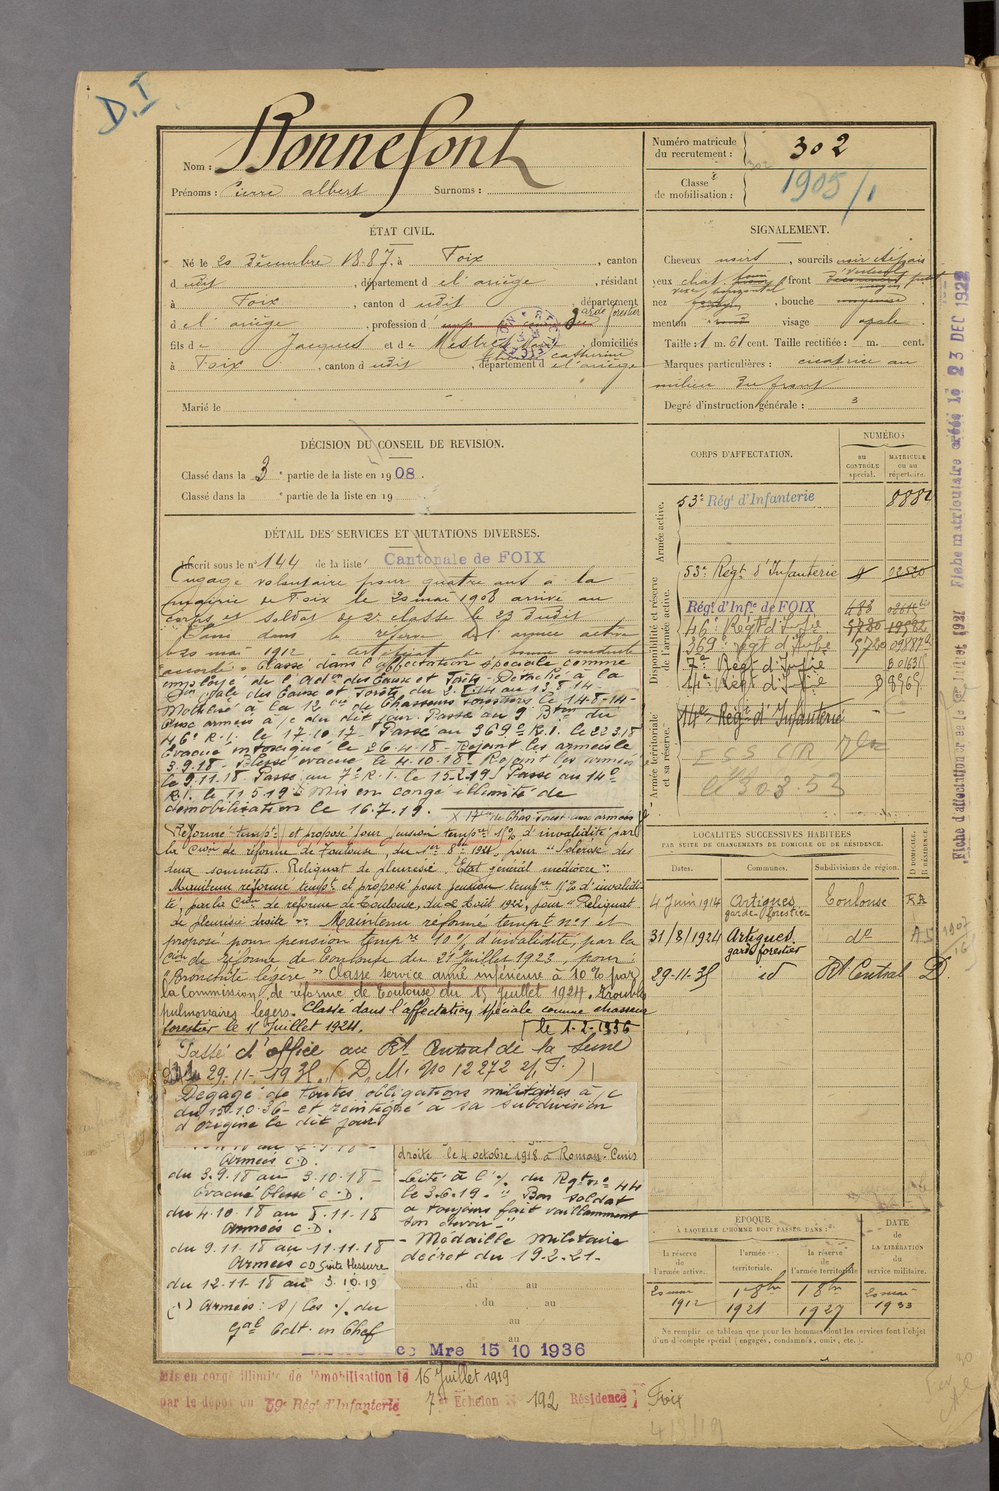 D.I
Nom : Bonnefont
Prénoms : Pierre albert Surnoms :
Numéro matricule du recrutement : 302
Classe de mobilisation : 1905/1
ÉTAT CIVIL.
Né le 20 Décembre 1887, à Foix, canton
dudit, département de l'ariège, résidant
à Foix, canton dudit, département
de l'ariège, profession d garde forestier
fils de Jacques et de Mestre domiciliés
à Foix, canton dudit, département de l'ariège
Marié le
SIGNALEMENT.
Cheveux noirs, sourcils noir
yeux chat. front
nez, bouche moyenne
menton rond visage ovale.
Taille : 1 m. 61 cent. Taille rectifiée : m. cent.
Marques particulières : cicatrice au
milieu du front
Degré d'instruction générale : 3
DÉCISION DU CONSEIL DE REVISION.
Classé dans la 3e partie de la liste en 1908.
Classé dans la e partie de la liste en 19
DÉTAIL DES SERVICES ET MUTATIONS DIVERSES.
Inscrit sous le n° 144 de la liste Cantonale de FOIX
Engagé volontaire pour quatre ans à la
mairie de Foix le 20 mai 1908 arrivé au
corps et soldat de 2e classe le 23 dudit
Passé dans la réserve de l'armée active
le 20 mai 1912 - Certificat de bonne conduite
accordé - Classé dans l'affectation spéciale comme
employé de l'Adon des Eaux et Forêts - Détaché à la
des Eaux et Forêts du 2.8.14 au 13.8.14
Mobilisé à la 12e Cie de Chasseurs forestiers le 14-8-14-
Aux armées à/c du dit jour. Passé au 9e Bton du
46e R.I. le 17.10.17. Passé au 369e R.I. le 22.3.18
Evacué intoxiqué le 26.4.18 - Rejoint les armées le
3.9.18 - Blessé évacué le 4.10.18 - Rejoint les armées
le 9.11.18 Passé au 7e R.I. le 15.2.19. Passé au 14e
R.I. le 11.5.19 - Mis en congé illimité de
démobilisation le 16.7.19.
Réformé tempre et proposé pour pension tempre 15% d'invalidité par
la Cion de réforme de Toulouse, du 1er 8bre 1921, pour "Sclérose des
deux sommets. Reliquat de pleurésie. Etat général médiocre".
Maintenu réformé tempt et proposé pour pension tempre 15% d'invalidi
té, par la Cion de réforme de Toulouse, du 2 Août 1922, pour "Reliquat
de pleurésie droite". Maintenu réformé tempt n°1 et
proposé pour pension tempre 10% d'invalidité, par la
Cion de réforme de Toulouse du 21 Juillet 1923, pour :
"Bronchite légère" Classé service armé inférieure à 10% par
la Commission de réforme de Toulouse du 15 Juillet 1924, troubles
pulmonaires légers. Classé dans l'affectation spéciale comme chasseur
forestier le 15 Juillet 1924. le 1-2-1936
Passé d'office au Rt Central de la Seine
29-11-1935 (D.M. No 12272 2/S.)
Dégagé de toutes obligations militaires à/c
du 15.10.36 - et réintégré à sa subdivision
d'origine le dit jour
Armées C.D.
du 3.9.18 au 3.10.18 -
Évacué blessé C.D.
du 4.10.18 au 8.11.18
Armées C.D.
du 9.11.18 au 11.11.18
Armées CD Suite blessure
du 12.11.18 au 3.10.19
(1) Armées : S/ les % du
Gal Cdt en Chef
droite le 4 octobre 1918 à
Cité à l'% du Rgt n° 44
le 3.6.19 - "Bon soldat
a toujours fait vaillamment
son devoir -"
- Médaille militaire
décret du 19.2.21 -
du au
du au
au
au
Mre 15 10 1936
CORPS D'AFFECTATION.
NUMÉROS
AU CONTRÔLE spécial.
MATRICULE OU AU répertoire.
Armée active.
53e Régt d'Infanterie 8881
Disponibilité et réserve de l'armée active.
53e Régt d'Infanterie
Régt d'Infie de FOIX 483
46e Régt d'Infie 5780 19582
369e régt d'Infie 5720
7e Régt d'Infie
14e Régt d'Infie
Armée territoriale et sa réserve.
14e Régt d'Infanterie
LOCALITÉS SUCCESSIVES HABITÉES
PAR SUITE DE CHANGEMENTS DE DOMICILE OU DE RÉSIDENCE.
Dates. Communes. Subdivisions de région. D DOMICILE. R RÉSIDENCE.
4 Juin 1914 Artigues garde forestier Toulouse
31/8/1924 Artigues garde forestier do
29-11-35 id Rt Central D.
ÉPOQUE
À LAQUELLE L'HOMME DOIT PASSER DANS :
la réserve de l'armée active.
l'armée territoriale.
la réserve de l'armée territoriale
DATE de LA LIBÉRATION du service militaire.
20 mai 1912
1921
1927
20 mai 1933
Ne remplir ce tableau que pour les hommes dont les services font l'objet
d'un décompte spécial (engagés, condamnés, omis, etc.).
Fiche d'affectation créée le 1er Juillet 1927 Fiche matriculaire créée le 23 DEC 1922
Mis en congé illimité de démobilisation le 16 Juillet 1919
par le dépôt du 59e Régt d'Infanterie 7e Echelon N° 192 Résidence Foix